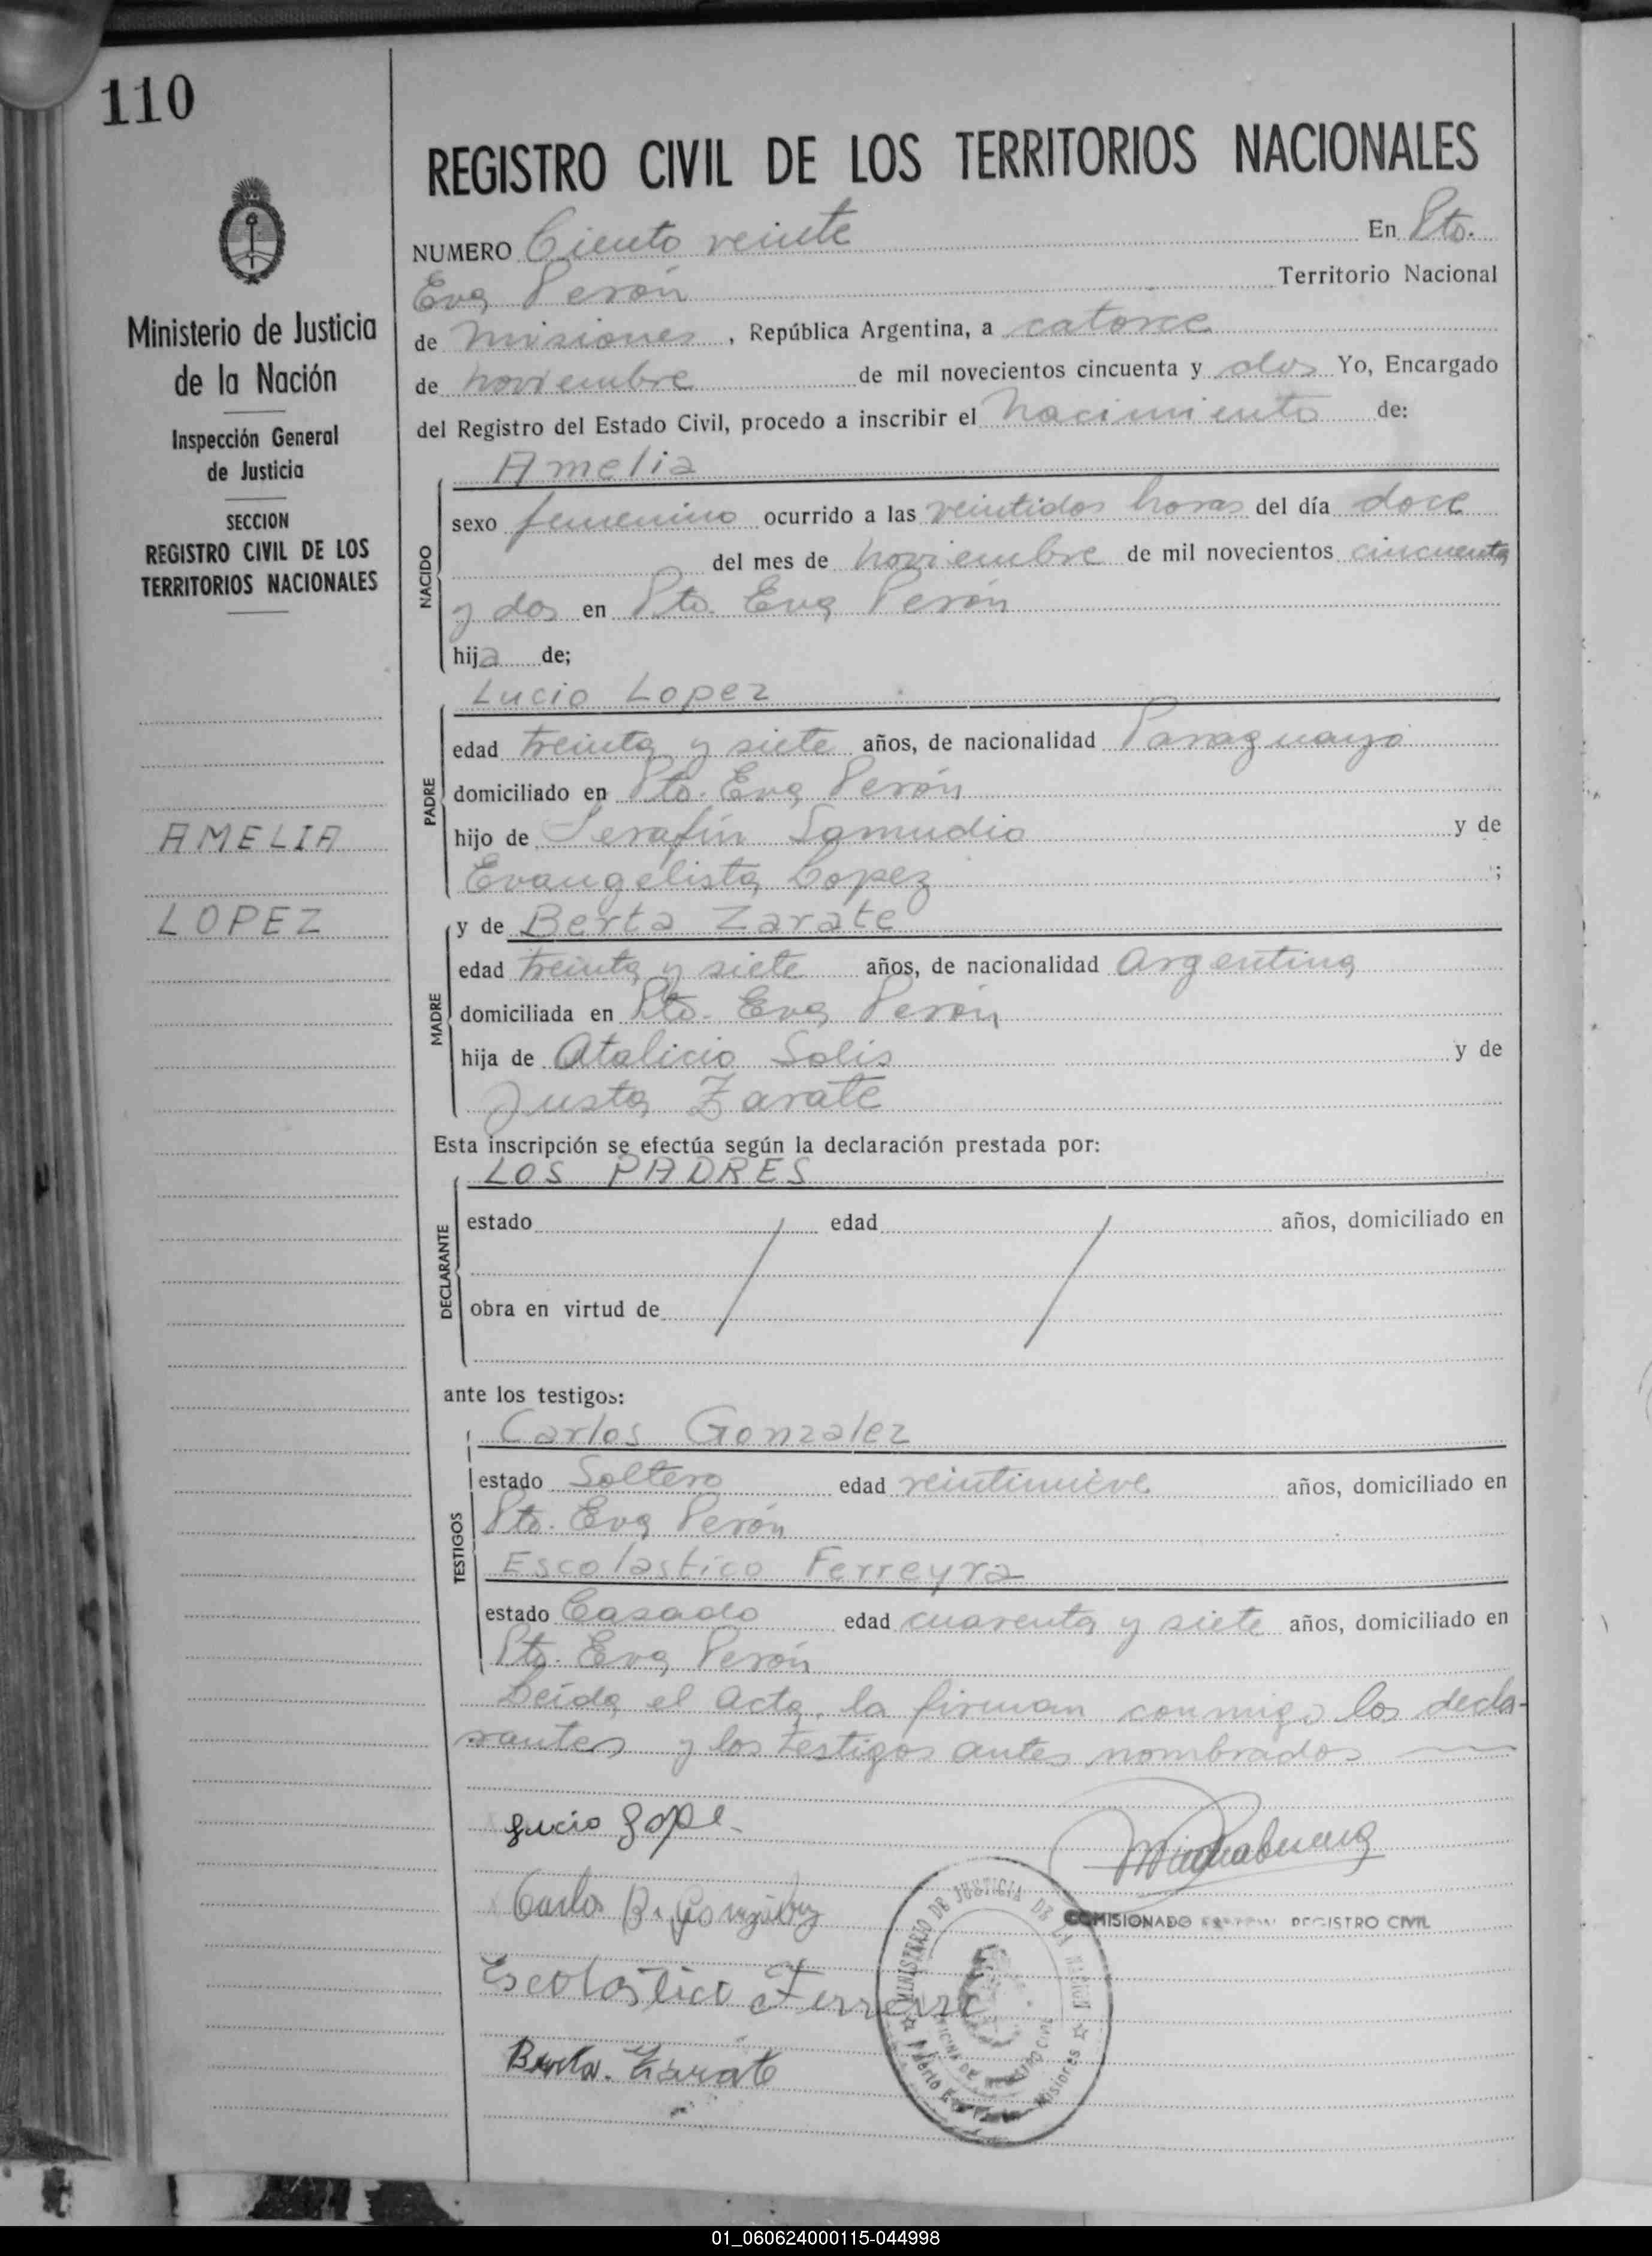 110
REGISTRO CIVIL DE LOS TERRITORIOS NACIONALES
NUMERO Ciento veinte En Pto.
Eva Perón Territorio Nacional
de Misiones, República Argentina, a catorce
de noviembre de mil novecientos cincuenta y dos Yo, Encargado
del Registro del Estado Civil, procedo a inscribir el nacimiento de:
Ministerio de Justicia
de la Nación
Inspección General
de Justicia
SECCION
REGISTRO CIVIL DE LOS
TERRITORIOS NACIONALES
AMELIA
LOPEZ
NACIDO
Amelia
sexo femenino ocurrido a las veintidos horas del día doce
del mes de noviembre de mil novecientos cincuenta
y dos en Pto. Eva Perón
hija de;
PADRE
Lucio Lopez
edad treinta y siete años, de nacionalidad Paraguayo
domiciliado en Pto. Eva Perón
hijo de Serafín Samudio y de
Evangelista Lopez ;
MADRE
y de Berta Zarate
edad treinta y siete años, de nacionalidad Argentina
domiciliada en Pto. Eva Perón
hija de Atalicio Solis y de
Justa Zarate
Esta inscripción se efectúa según la declaración prestada por:
DECLARANTE
LOS PADRES
estado edad años, domiciliado en
obra en virtud de
ante los testigos:
TESTIGOS
Carlos Gonzalez
estado Soltero edad veintinueve años, domiciliado en
Pto. Eva Perón
Escolastico Ferreyra
estado Casado edad cuarenta y siete años, domiciliado en
Pto. Eva Perón
Leída el acta, la firman conmigo los decla-
rantes y los testigos antes nombrados
Lucio Lope
Carlos B. Gonzalez
COMISIONADO REGISTRO CIVIL
MINISTERIO DE JUSTICIA DE LA NACION
OFICINA DE REGISTRO CIVIL
Puerto Misiones
Escolástico Ferreira
Berta. Zarate
01_060624000115-044998